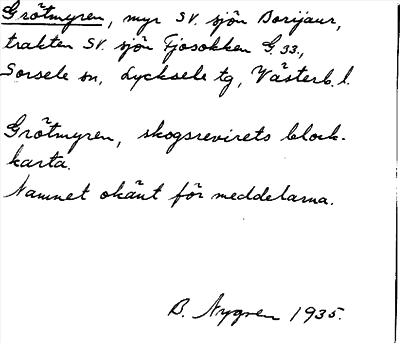 Grötmyren, myr SV. sjön Borijaur,
trakten SV. sjön Fjosokken G 33.,
Sorsele sn, Lycksele tg, Västerb. l.
Grötmyren, skogsrevirets block-
karta.
Namnet okänt för meddelarna.
B. Nygren 1935.